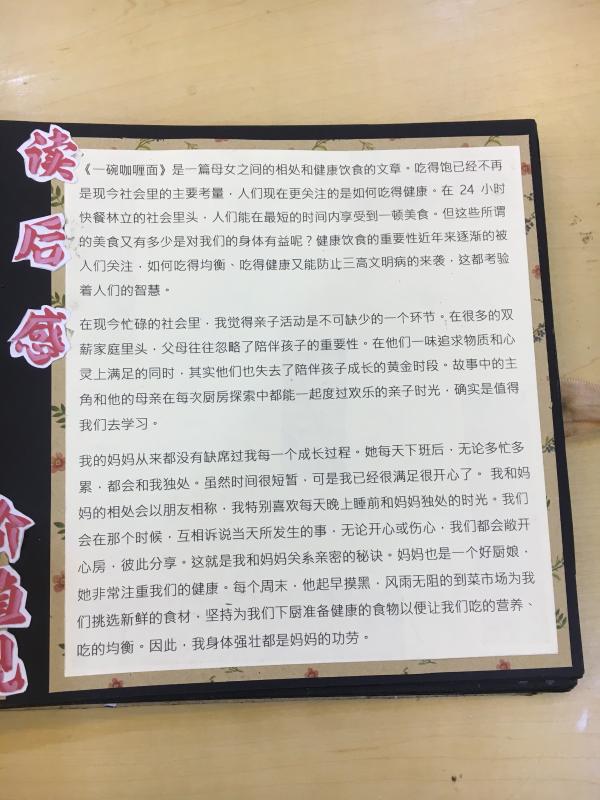 读后感
《一碗咖喱面》是一篇母女之间的相处和健康饮食的文章。吃得饱已经不再
是现今社会里的主要考量，人们现在更关注的是如何吃得健康。在 24 小时
快餐林立的社会里头，人们能在最短的时间内享受到一顿美食。但这些所谓
的美食又有多少是对我们的身体有益呢？健康饮食的重要性近年来逐渐的被
人们关注，如何吃得均衡、吃得健康又能防止三高文明病的来袭，这都考验
着人们的智慧。
在现今忙碌的社会里，我觉得亲子活动是不可缺少的一个环节。在很多的双
薪家庭里头，父母往往忽略了陪伴孩子的重要性。在他们一味追求物质和心
灵上满足的同时，其实他们也失去了陪伴孩子成长的黄金时段。故事中的主
角和他的母亲在每次厨房探索中都能一起度过欢乐的亲子时光，确实是值得
我们去学习。
我的妈妈从来都没有缺席过我每一个成长过程。她每天下班后，无论多忙多
累，都会和我独处。虽然时间很短暂，可是我已经很满足很开心了。 我和妈
妈的相处会以朋友相称，我特别喜欢每天晚上睡前和妈妈独处的时光。我们
会在那个时候，互相诉说当天所发生的事，无论开心或伤心，我们都会敞开
心房，彼此分享。这就是我和妈妈关系亲密的秘诀。妈妈也是一个好厨娘，
她非常注重我们的健康。每个周末，他起早摸黑，风雨无阻的到菜市场为我
们挑选新鲜的食材，坚持为我们下厨准备健康的食物以便让我们吃的营养、
吃的均衡。因此，我身体强壮都是妈妈的功劳。
价值观